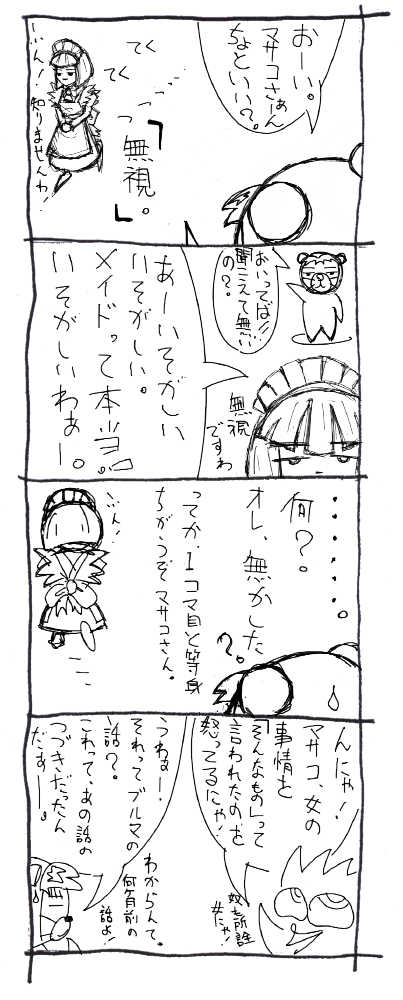 おーい。
マサコさぁん
ちょといい?。
てく
てく
「無視。」
ぷん!知りませんわ!
おいってば!!
聞こえて無い
の?。
無視
ですわ
あーいそがしい
いそがしい。
メイドって本当。
いそがしいわぁー。
・・・・・・。
何?。
オレ、無かした
?。
ってか、1コマ目と等身
ちがうぞマサコさん。
ぷん!
んにゃ!
マサコ、女の
事情を
「そんなもの」って
言われたのを
怒ってるにゃ!
うわぁー!
それってブルマの
話?。
これって、あの話の
つづきだったん
だぁー。
わからんて。
何ヶ月前の
話よ!